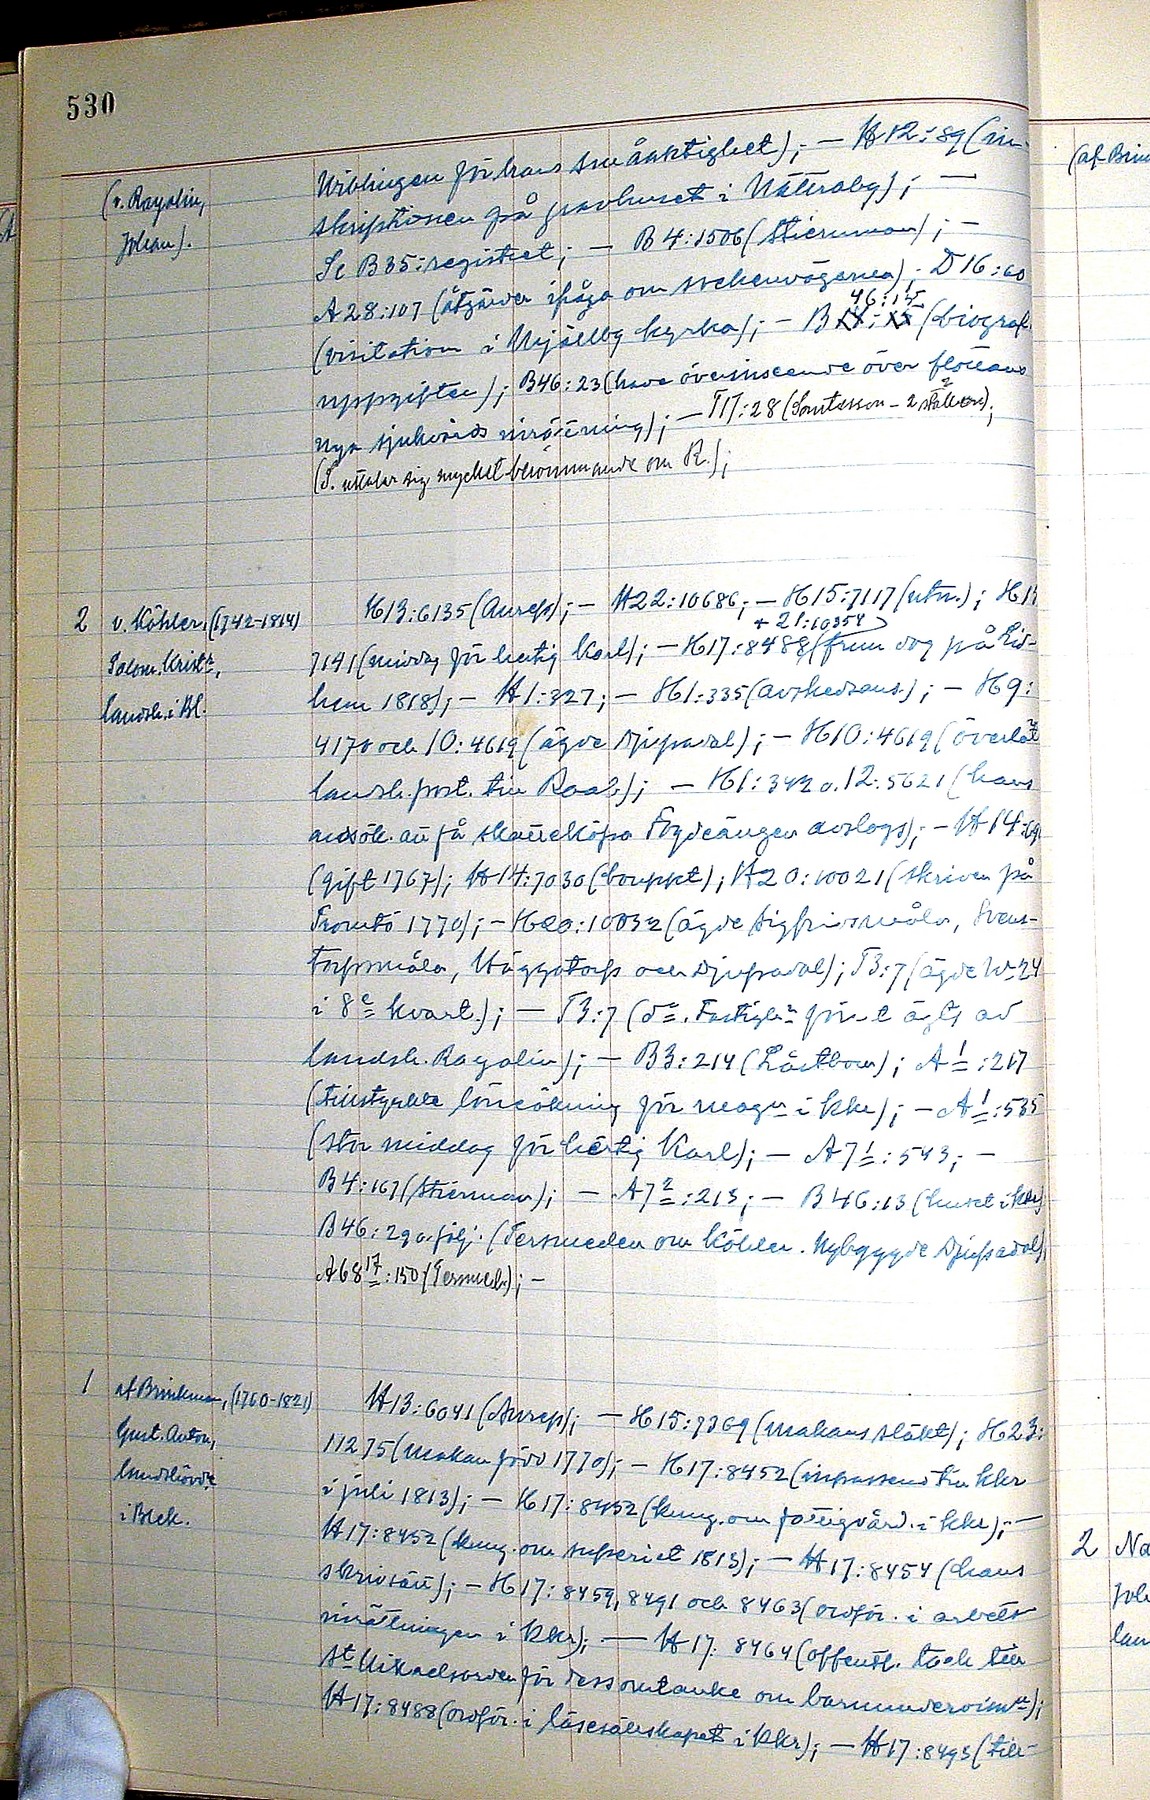 530
(v. Rayalin, Johan).
för hans småaktighet); — H12:89 (in-
skriptionen på gravhuset i Nättraby); —
Se B35: registret; — B4:1506 (Stiernman); —
A28:107 (åtgärder ifråga om sockenvägarna); D16:60
46:15
(visitation i Mjällby kyrka); — B (biograf.
uppgifter); B46:23 (hade överinseende över flottans
nya sjukvårdsinrättning); — T17:28 (2 ställen);
(T. uttalar sig mycket berömmande om R.);
2 v. Köhler, (1742-1814)
Salom. Krist:r,
landsh. i Bl.
H13:6135 (Anrep); — H22:10686; — H15:7117 (utn.); H15
+ 21:10354
7141 (middag för hertig Karl); — H17:8488 (frun dog på Lid-
hem 1818); — H1:327; — H1:335 (avskedsans.); — H9:
4170 och 10:4619 (ägde Djupadal); — H10:4619 (överlät
landsh.post. till Raab); — H1:342 o. 12:5621 (hans
ansök. att få skatteköpa Fogdeängen avslogs); — H14:
(gift 1767); H14:7030 (bouppt); H20:10021 (skriven på
Tromtö 1770); — H20:10032 (ägde Sigfridsmåla, Svens-
torpsmåla, Häggatorp och Djupadal); T3:7 (ägde No 24
i 8e kvart.); — T3:7 (d:o. Fastigh:n förut ägts av
landsh. Rayalin); — B3:214 (Låstbom); A 1:217
(tillstyrkte löneökning för i kkr); — A 1:535
(stor middag för hertig Karl); — A7 1:543; —
B4:167 (Stiernman); — A7 2:213; — B46:13 (huset i kkr)
B46:29 o. följ. (Tersmeden om Köhler. Nybyggde Djupadal)
A68 17:150 (Tersmeden); —
1 af Brinkman, (1760-1821)
Gust. Anton,
landshövd:e
i Blek.
H13:6041 (Anrep); — H15:7369 (makans släkt); H23:
11275 (makan född 1770); — H17:8452 (inpasserad till kkr
i juli 1813); — H17:8452 (kung. om fattigvård. i kkr); —
H17:8452 (kung. om superiet 1813); — H17:8454 (hans
skrivsätt); — H17:8459, 8491 och 8463 (ordför. i arbets-
inrättningen i kkr); — H17:8464 (offentl. tack till
S:t Mikaelsorden för dess omtanke om barnundervisn:n);
H17:8488 (ordför. i läsesällskapet i kkr); — H17:8493 (till-
(af Brin
2 Na
Joh
lan